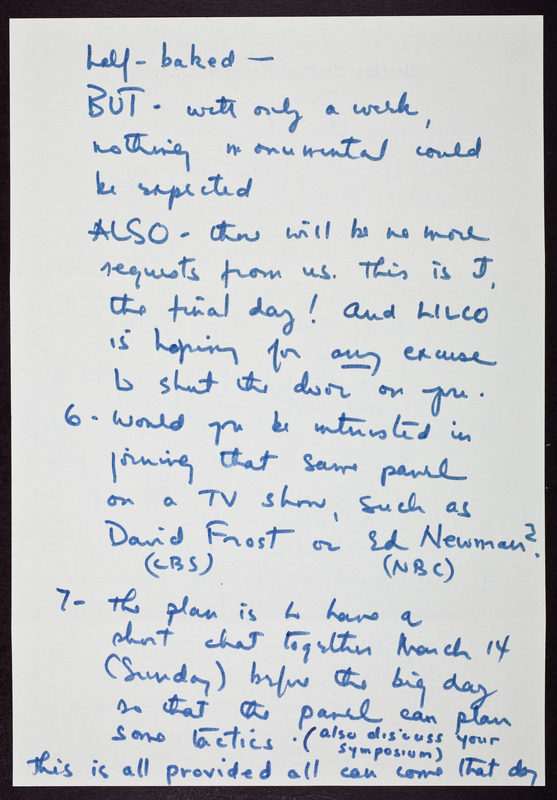 half-baked —
BUT - with only a week,
nothing monumental could
be expected
ALSO - there will be no more
requests from us. This is it,
the final day! And LILCO
is hoping for any excuse
to shut the door on you.
6 - Would you be interested in
joining that same panel
on a TV show, such as
David Frost or Ed Newman?
(CBS) (NBC)
7 - The plan is to have a
short chat together March 14
(Sunday) before the big day
so that the panel can plan
some tactics. (also discuss your
symposium)
This is all provided all can come that day